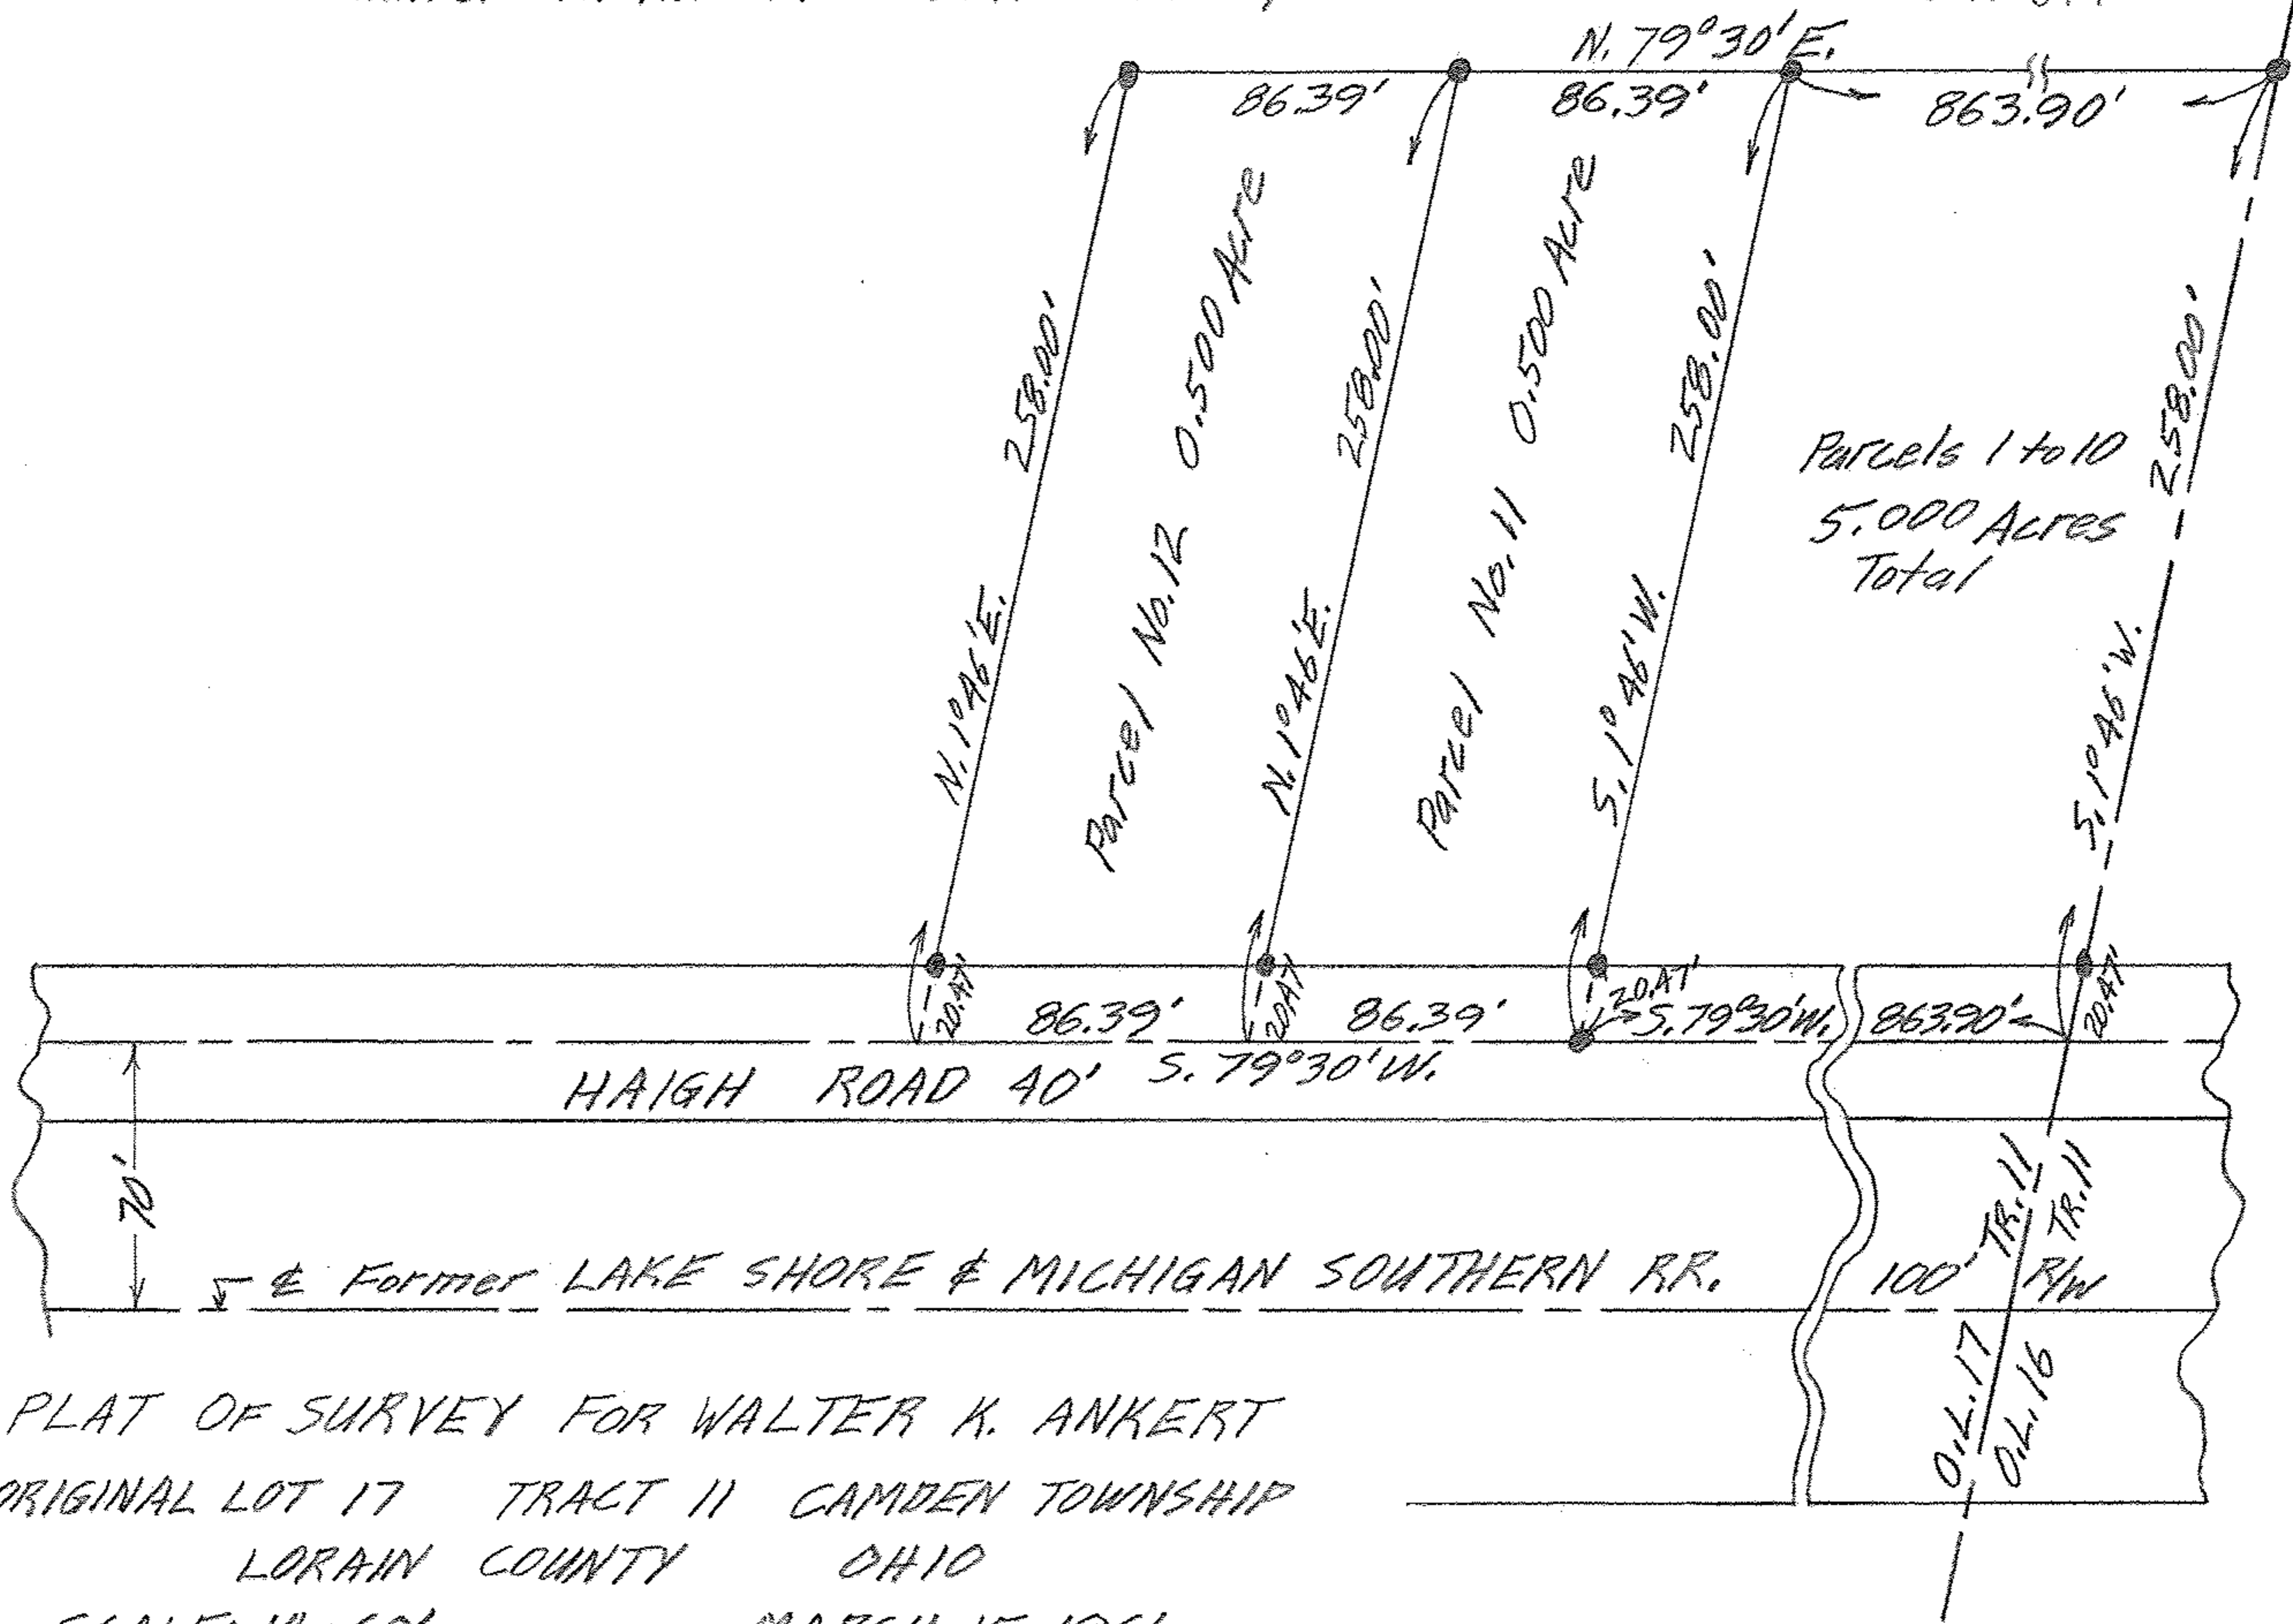 N. 79°30'E.
86.39'
86.39'
863.90'
258.00'
N. 1°46'E.
Parcel No. 12 0.500 Acre
258.00'
N. 1°46'E.
Parcel No. 11 0.500 Acre
258.00'
S. 1°46'W.
Parcels 1 to 10
5.000 Acres
Total
258.00'
S. 1°46'W.
20.47'
86.39'
20.47'
86.39'
20.47'
S. 79°30'W.
863.90'
20.47'
HAIGH ROAD 40' S. 79°30'W.
70'
TR. 11
TR. 11
℄ Former LAKE SHORE & MICHIGAN SOUTHERN RR. 100' R/W
O.L. 17
O.L. 16
PLAT OF SURVEY FOR WALTER K. ANKERT
ORIGINAL LOT 17 TRACT 11 CAMDEN TOWNSHIP
LORAIN COUNTY OHIO